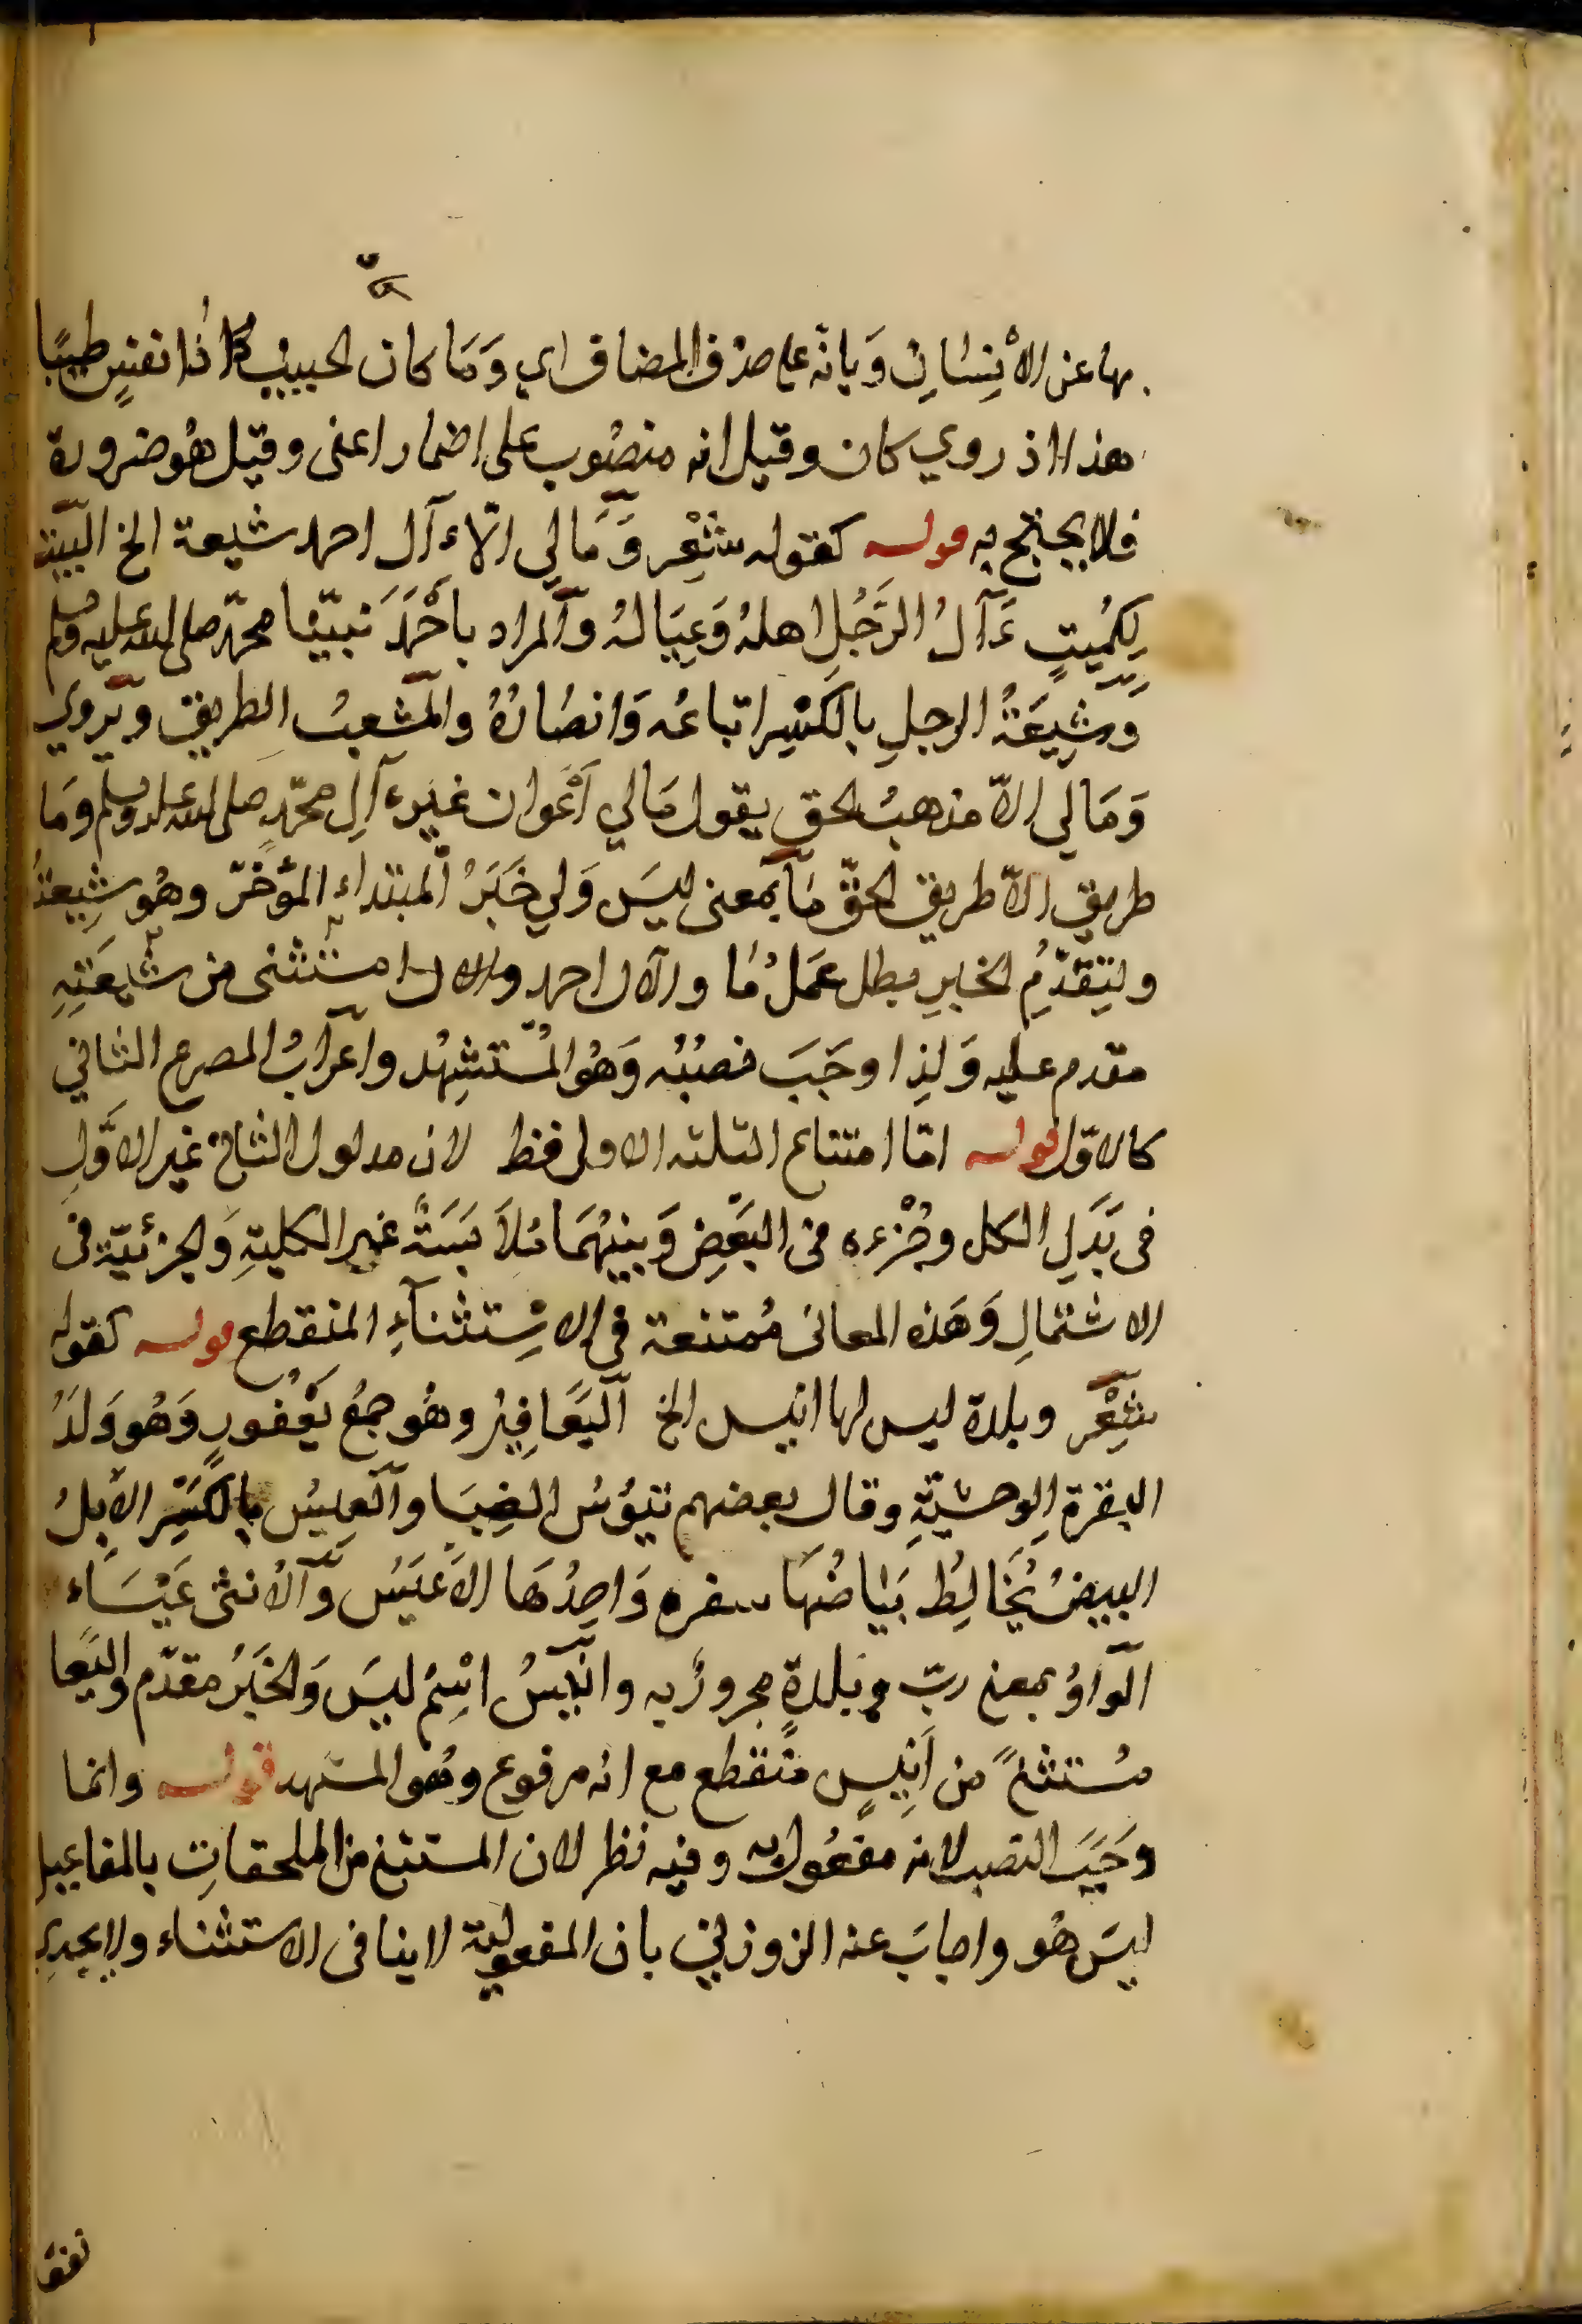 بها عن الأنِسَانِ وَبانّه على حذف المضاف اي وَمَا كان الحبيبُ ذا نفسٍ طيبًا
هذا اذ روي كان وقيل انه منصُوب على اضمار اعنى وقيل هُو ضرورة
فلا يحتج به قوله كقوله شِعْر وَمَا لي الّا ءآل احمد شيعة الخ البيت
لِكمُيتٍ ءَآلُ الرَّجُلِ اهلهُ وَعِيَالهُ والمراد بأحْمَدَ نبيّنا محمّد صلى الله عليه وسلم
وَشِيعَةُ الرجلِ بالكسْر اتباعُه وَانصُارُهُ والمشعبُ الطريق ويروي
وَمَا لي الاّ مذهبُ الحق يقول مَالي أعْوان غيَرءآلِ محمّدٍ صلى الله عليه وسلم وَمَا
طريق الاّ طريق الحقّ مَا بمعنى ليسَ وَلي خَبَرُ المبتداءِ المؤخّر وهُو شيعَةُ
ولتِقَدّمُِ الخبرِ بطل عمَلُ مَا والآل احمد والال مستثنى من شيعَتِهِ
مقدم عليه وَلذِا وجَبَ نصبُه وَهُو المُستشِهُد واعرابُ المصرع الثاني
كالاوّل قوله امّا امتناع الثلثه الاولى فظ لان مدلول الثانى غير الاوّلِ
فى بَدَلِ الكل وجُزْءه فى البَعْضِ وَبينهُمَا مُلاَبَسَةٌ غير الكليةِ وَالجزئيّة فى
الاشتمالِ وَهَذه المعانى مُمتنعة فى الاسْتثنآءِ المنقطع قوله كقوله
شِعْر وبلدة ليس لها انيس الخ اليَعَافِيرُ وهُو جمعُ يَعْفورٍ وَهُو وَلَدُ
البقرة الوِحشيّةِ وقال بعضهم تيُوسُ الضِبَا والعِيسُ بالكسْرِ الأبلُ
البيضُ يُخَالِطُ بَيَاضُهَا سفره وَاحِدُهَا الاَعْيَسُ وَالأنثى عَيْسَاء
الواوُ بمعنى ربّ وبلدةٍ مجرورٌ به وانيسُ اسْمُ ليسَ وَالخَبَرُ مقدّم واليَعَا
مُستثنًى من اَنيِسٍ منقطع مع انه مرفوع وهُو المستهد قوله وانما
وَجَبَ النصب لانه مفعُول به وفيه نظر لان المستثنى من الملحقاتِ بالمفاعيل
ليسَ هُو واجابَ عنه الزوزني بان المفعولية لا ينافى الاستثناء ولا يجدي